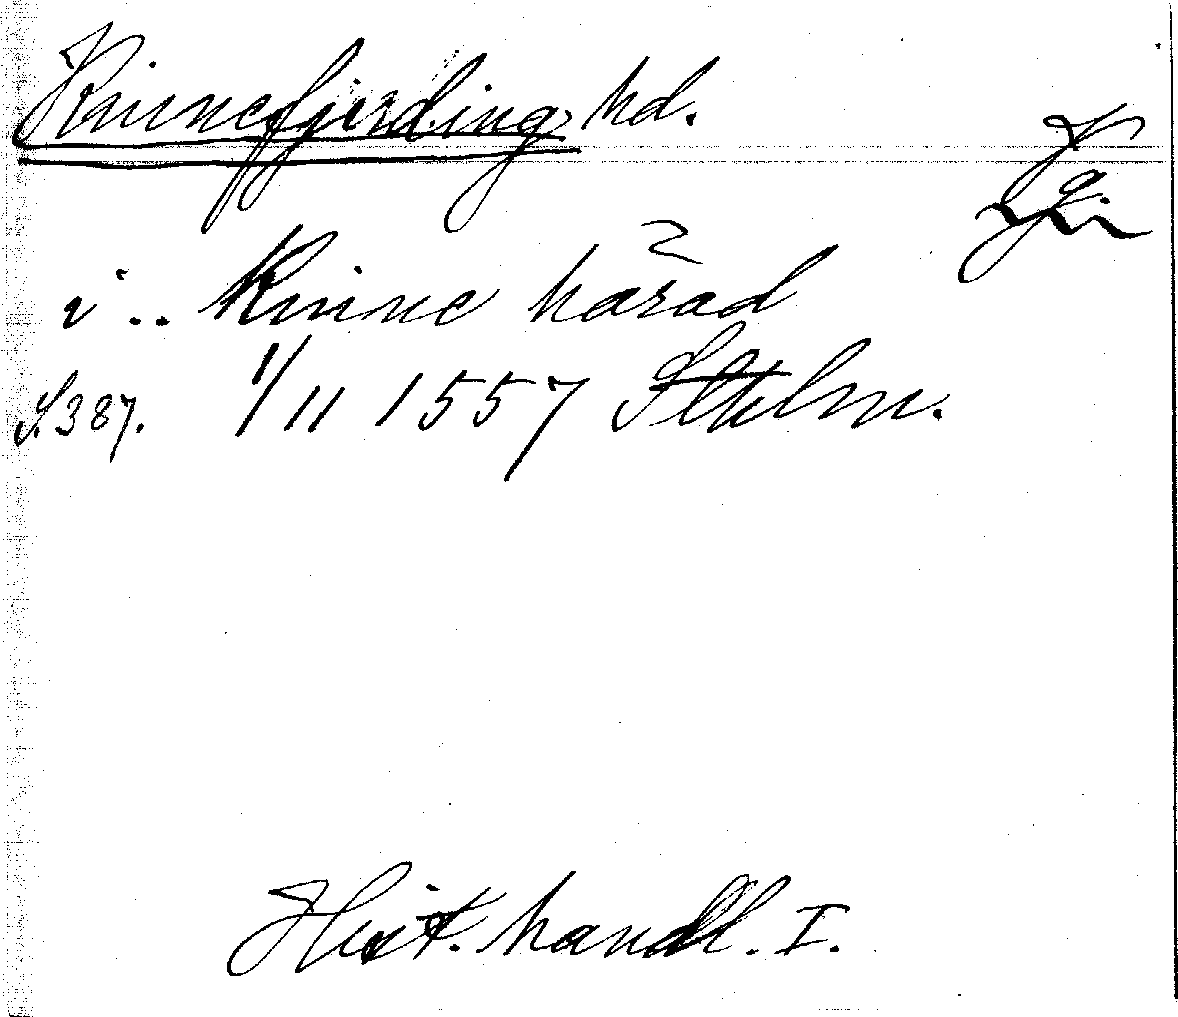 Kinnefjerding, hd.
i .. Kinne härad
S. 387. 1/11 1557 Sthlm.
Hist. handl. I.